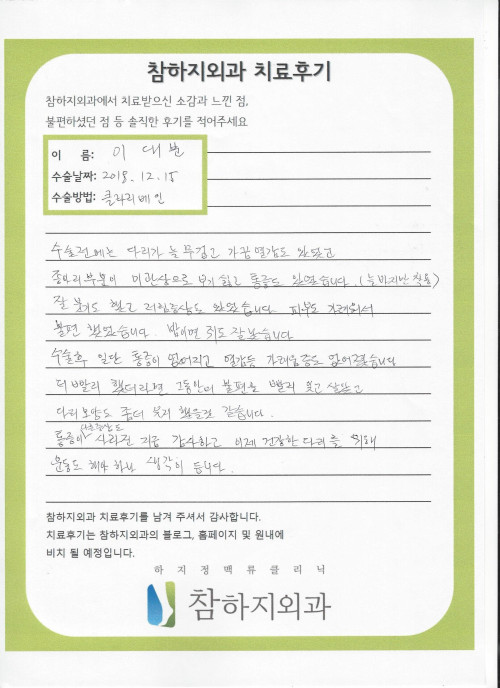 참하지외과 치료후기
참하지외과에서 치료받으신 소감과 느낀 점,
불편하셨던 점 등 솔직한 후기를 적어주세요
이 름: 이 대
수술날짜: 2018. 12. 15
수술방법: 클라리베인
수술전에는 다리가 늘 무겁고 가끔 열감도 있었고
종아리부분이 미관상으로 보기 싫고 통증도 있었습니다. (늘 바지만 착용)
잘 붓기도 했고 저림증상도 있었습니다 피부도 가려워서
불편 했었습니다. 밤이면 쥐도 잘 났습니다
수술후 일단 통증이 없어지고 열감등 가려움증도 없어졌습니다
더 빨리 했더라면 그동안의 불편을 빨리 잊고 살았고
다리모양도 좀더 했을것 같습니다.
통증이 사라진 지금 감사하고 이제 건강한 다리를 위해
운동도 해야 하는 생각이 듭니다.
참하지외과 치료후기를 남겨 주셔서 감사합니다.
치료후기는 참하지외과의 블로그, 홈페이지 및 원내에
비치 될 예정입니다.
하지정맥류클리닉
참하지외과